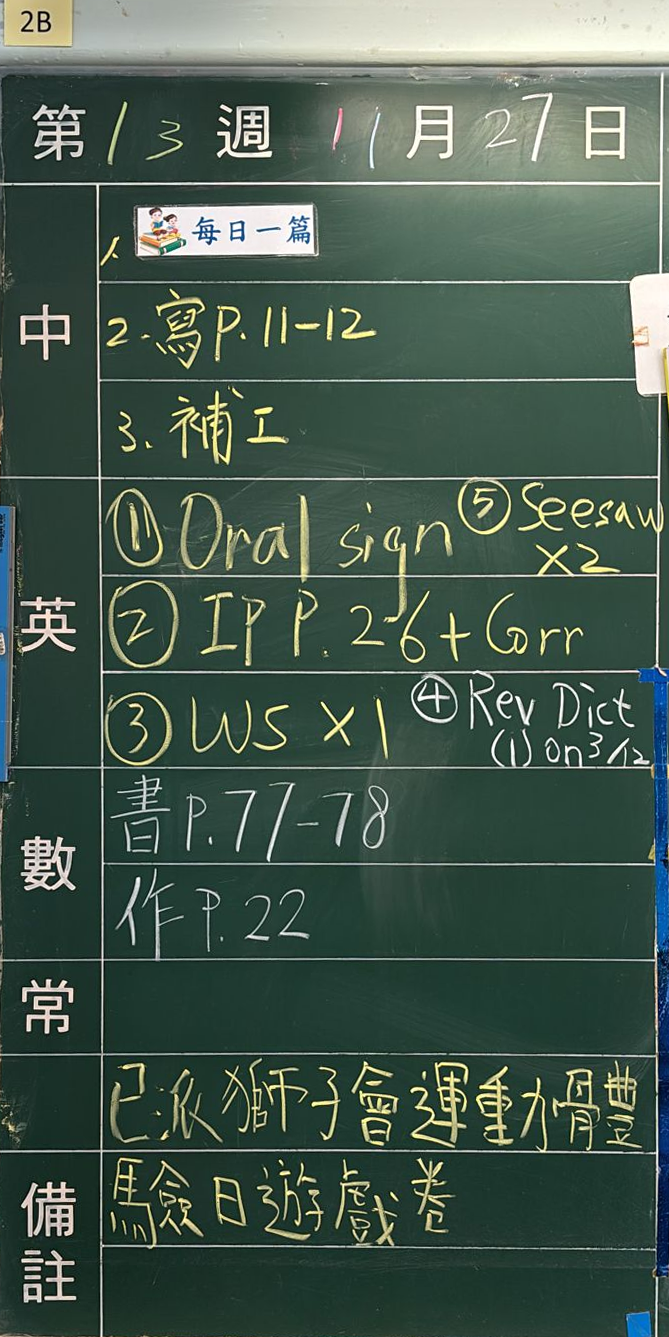 2B
第13週 11月27日
中
1. 每日一篇
2. 寫P.11-12
3. 補工
英
① Oral sign ⑤ Seesaw X2
② IP P. 26 + Corr
③ WS X1 ④ Rev Dict (1) on 3/12
數
書P.77-78
作P.22
常
已派獅子會運動體
備註
驗日遊戲卷